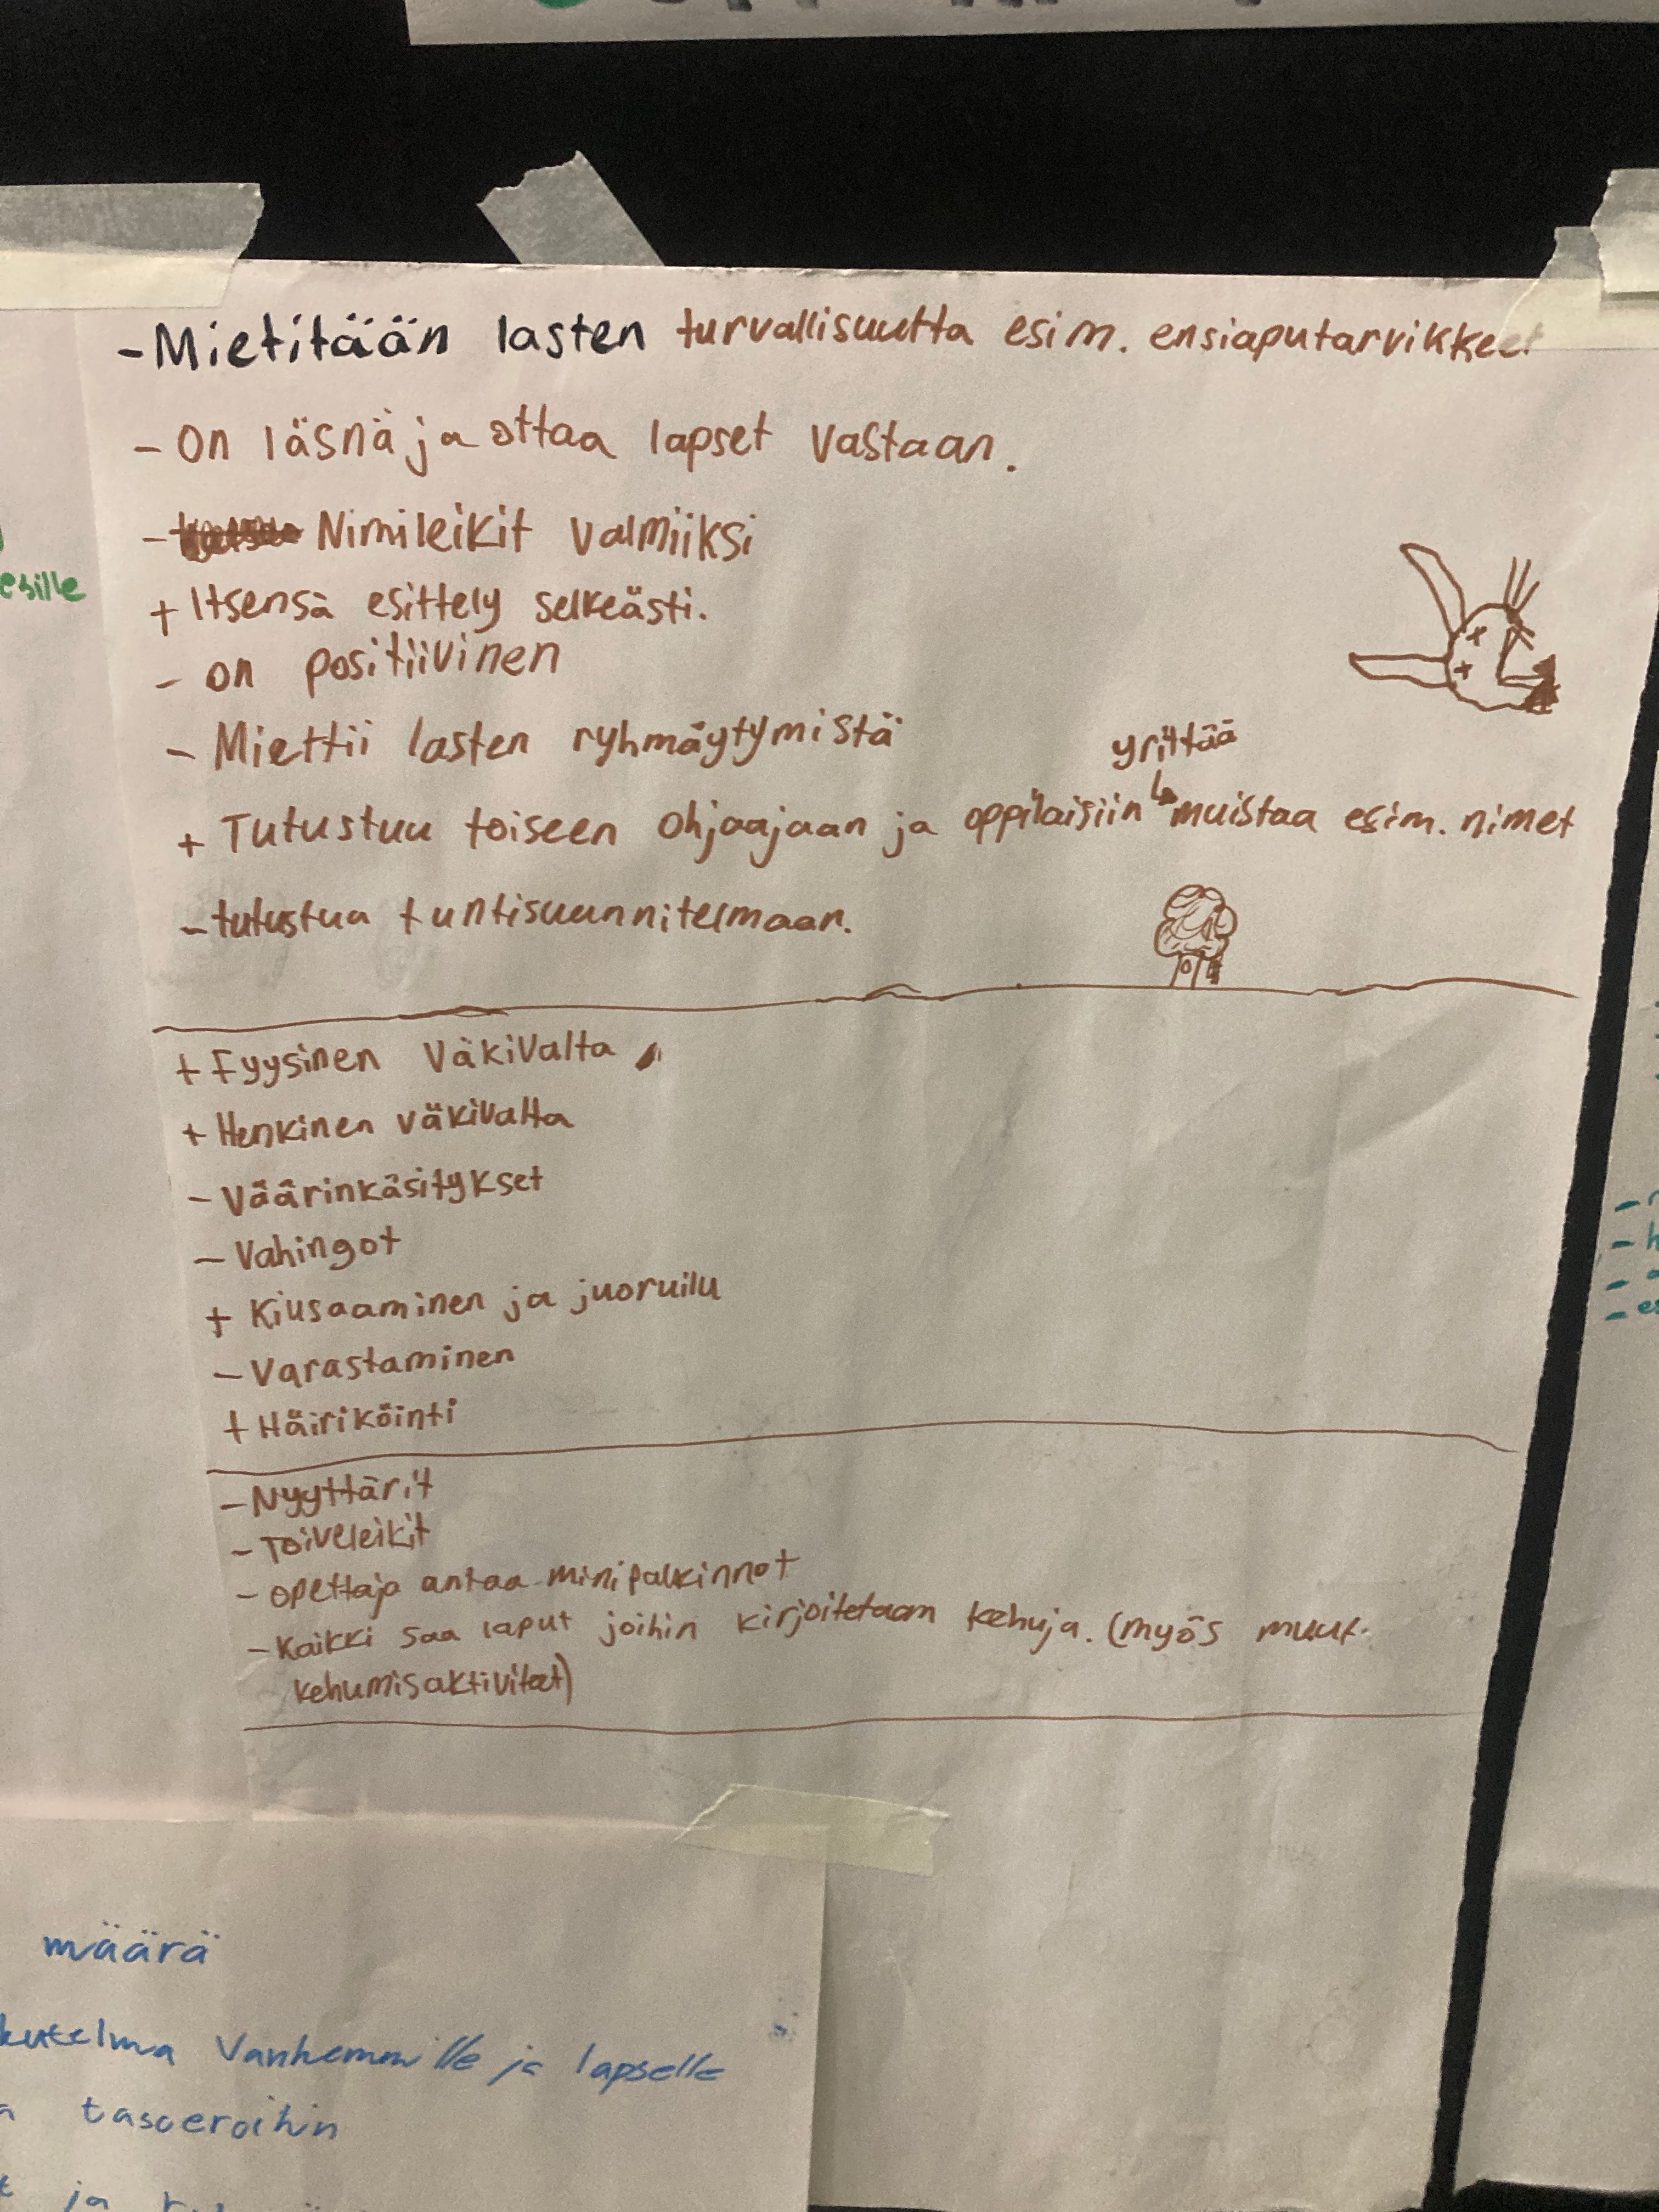 - Mietitään lasten turvallisuutta esim. ensiaputarvikkeet
- On läsnä ja ottaa lapset vastaan.
- Nimileikit valmiiksi
+ Itsensä esittely selkeästi.
- on positiivinen
- Miettii lasten ryhmäytymistä
yrittää
+ Tutustuu toiseen ohjaajaan ja oppilaisiin ↳ muistaa esim. nimet
- tutustua tuntisuunnitelmaan.
+ Fyysinen väkivalta
+ Henkinen väkivalta
- Väärinkäsitykset
- Vahingot
+ Kiusaaminen ja juoruilu
- Varastaminen
+ Häiriköinti
- Nyyttärit
- Toiveleikit
- opettaja antaa minipalkinnot
- Kaikki saa laput joihin kirjoitetaan kehuja. (myös muut.
kehumisaktiviteet)
määrä
vanhemmille ja lapselle
tasoeroihin
ja